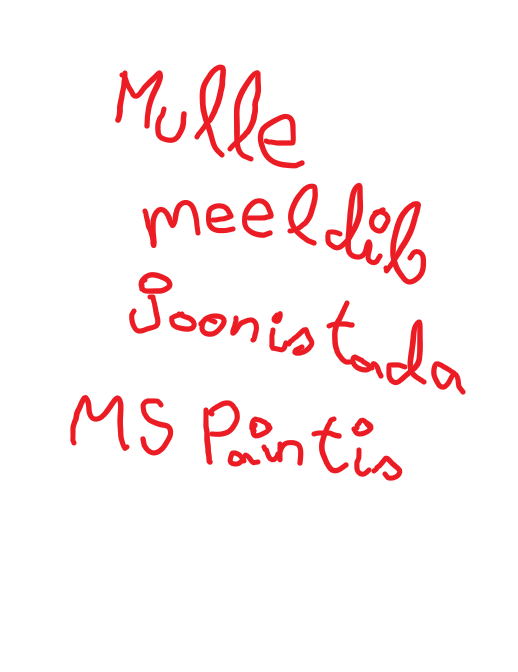 Mulle
meeldib
joonistada
MS Paintis